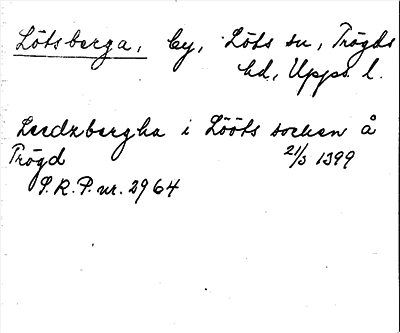 Lötsberga, by, Löts sn, Trögds
hd, Upps. l.
Lerdzbergha i Lööts socken å
Trögd 21/3 1399
S.R.P. nr. 2964